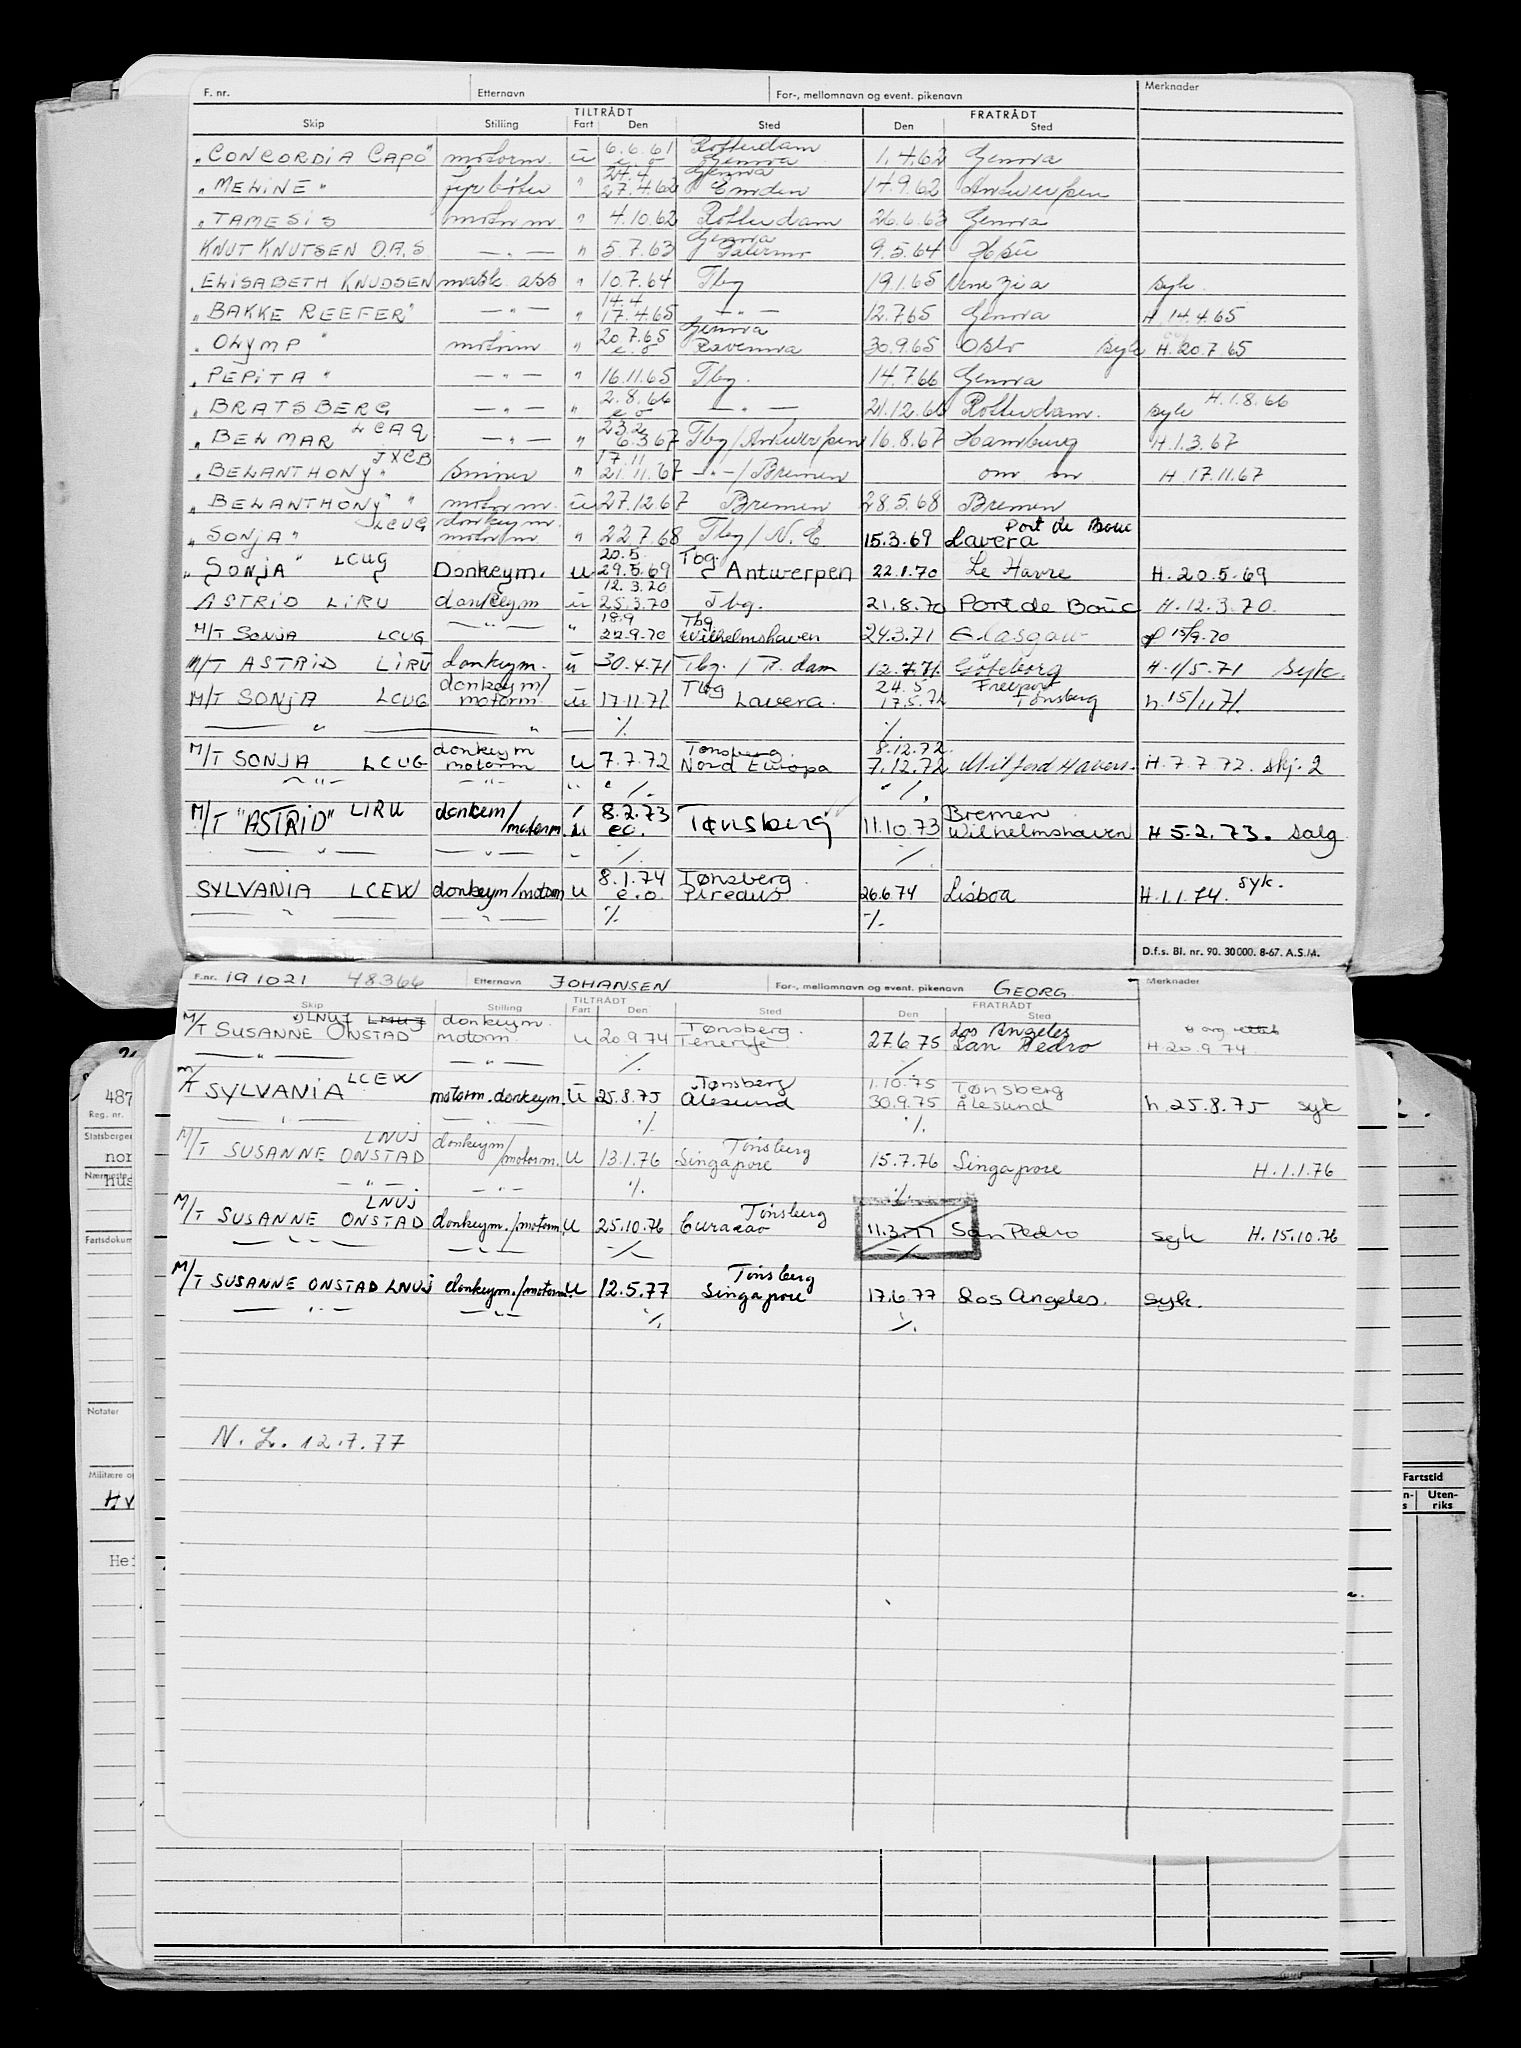 F. nr. Etternavn For-, mellomnavn og event. pikenavn Merknader
TILTRÅDT FRATRÅDT
Skip Stilling Fart Den Sted Den Sted
"CONCORDIA CAPO" motorm. u 6.6.61 e.o Rotterdam Genova 1.4.62 Genova
"MELINE" fyrbøter " 24.4 27.4.62 Genova Emden 14.9.62 Antwerpen
"TAMESIS motorm " 4.10.62 Rotterdam 26.6.63 Genova
KNUT KNUTSEN O.A.S. — " — " 5.7.63 Genova Palermo 9.5.64
"ELISABETH KNUDSEN mask. ass " 10.7.64 Tbg 19.1.65 Venezia syk.
"BAKKE REEFER" — " — " 14.4 17.4.65 — " — 12.7.65 Genova H 14.4.65
"OLYMP" motorm " 20.7.65 e.o Genova Ravenna 30.9.65 Oslo syk H.20.7.65
"PEPITA" — " — " 16.11.65 Tbg. 14.7.66 Genova
"BRATSBERG — " — " 2.8.66 e o — " — 21.12.66 Rotterdam. syk H.1.8.66
"BELMAR LCAQ — " — " 23.2 6.3.67 Tbg/Antwerpen 16.8.67 Hamburg H.1.3.67
"BELANTHONY" JXCB smører " 17.11 21.11.67 — " —/Bremen om. m H.17.11.67
"BELANTHONY" " motorm. u 27.12.67 Bremen 28.5.68 Bremen
"SONJA" LCUG donkeym. motorm " 22.7.68 Tbg/N.E 15.3.69 Port de Bouc Lavera
"SONJA" LCUG Donkeym. u 20.5. 29.5.69 Tbg. Antwerpen 22.1.70 Le Havre H.20.5.69
ASTRID LIRU donkeym u 12.3.70 25.3.70 Tbg. 21.8.70 Port de Bouc H.12.3.70.
M/T SONJA LCUG — " — " 18.9 22.9.70 Tbg Wilhelmshaven 24.3.71 Glasgow 15/9.70
M/T ASTRID LIRU donkeym. u 30.4.71 Tbg. / R.dam 12.7.71 Göteborg H.1/5.71 Syk.
M/T SONJA LCUG donkeym/ motorm. u 17.11.71 Tbg Lavera. 24.5 17.5.72 Freeport Tønsberg h.15/11.71.
— " — — " — ./. ./.
M/T SONJA LCUG donkeym motorm u 7.7.72 Tønsberg. Nord Europa 8.12.72. 7.12.72 Milford Haven. H.7.7.72. skj. 2
— " — — " — " ./. ./.
M/T "ASTRID" LIRU donkem/motorm. u 8.2.73 eo. Tønsberg 11.10.73 Bremen Wilhelmshaven H 5.2.73. Salg
— " — — " — " ./. ./.
SYLVANIA LCEW donkeym/motorm u 8.1.74 e.o. Tønsberg. Pireaus 26.6.74 Lisboa H.1.1.74. syk.
— " — — " — ./. ./.
D.f.s. Bl. nr. 90. 30 000. 8-67. A.S.M.
F.nr. 191021 48366 Etternavn JOHANSEN For-, mellomnavn og event. pikenavn GEORG. Merknader
TILTRÅDT FRATRÅDT
Skip Stilling Fart Den Sted Den Sted
M/T SUSANNE ONSTAD x) LNUJ LMUJ donkeym. motorm. u 20.9.74 Tønsberg. Tenerife 27.6.75 Los Angeles San Pedro H.20.9.74.
— " — — " — ./. ./.
M/T SYLVANIA LCEW motorm. donkeym. u 25.8.75 Tønsberg Ålesund 1.10.75 30.9.75 Tønsberg Ålesund h.25.8.75 syk
— " — — " — ./. ./.
M/T SUSANNE ONSTAD LNUJ donkeym/motorm. u 13.1.76 Tønsberg Singapore 15.7.76 Singapore H.1.1.76
— " — — " — ./. ./.
M/T SUSANNE ONSTAD LNUJ donkeym./motorm. u 25.10.76 Tønsberg Curacao 11.3.77 San Pedro syk H.15.10.76
— " — — " — ./. ./.
M/T SUSANNE ONSTAD LNUJ donkeym./motorm. u 12.5.77 Tønsberg Singapore 17.6.77 Los Angeles. syk.
— " — — " — ./. ./.
N. L. 12.7.77
487
Reg. nr.
Statsborger
nor
Nærmeste
hus
Fartsdokum
Notater
Militære o
HV
Hei
Fartstid
Uten-
riks